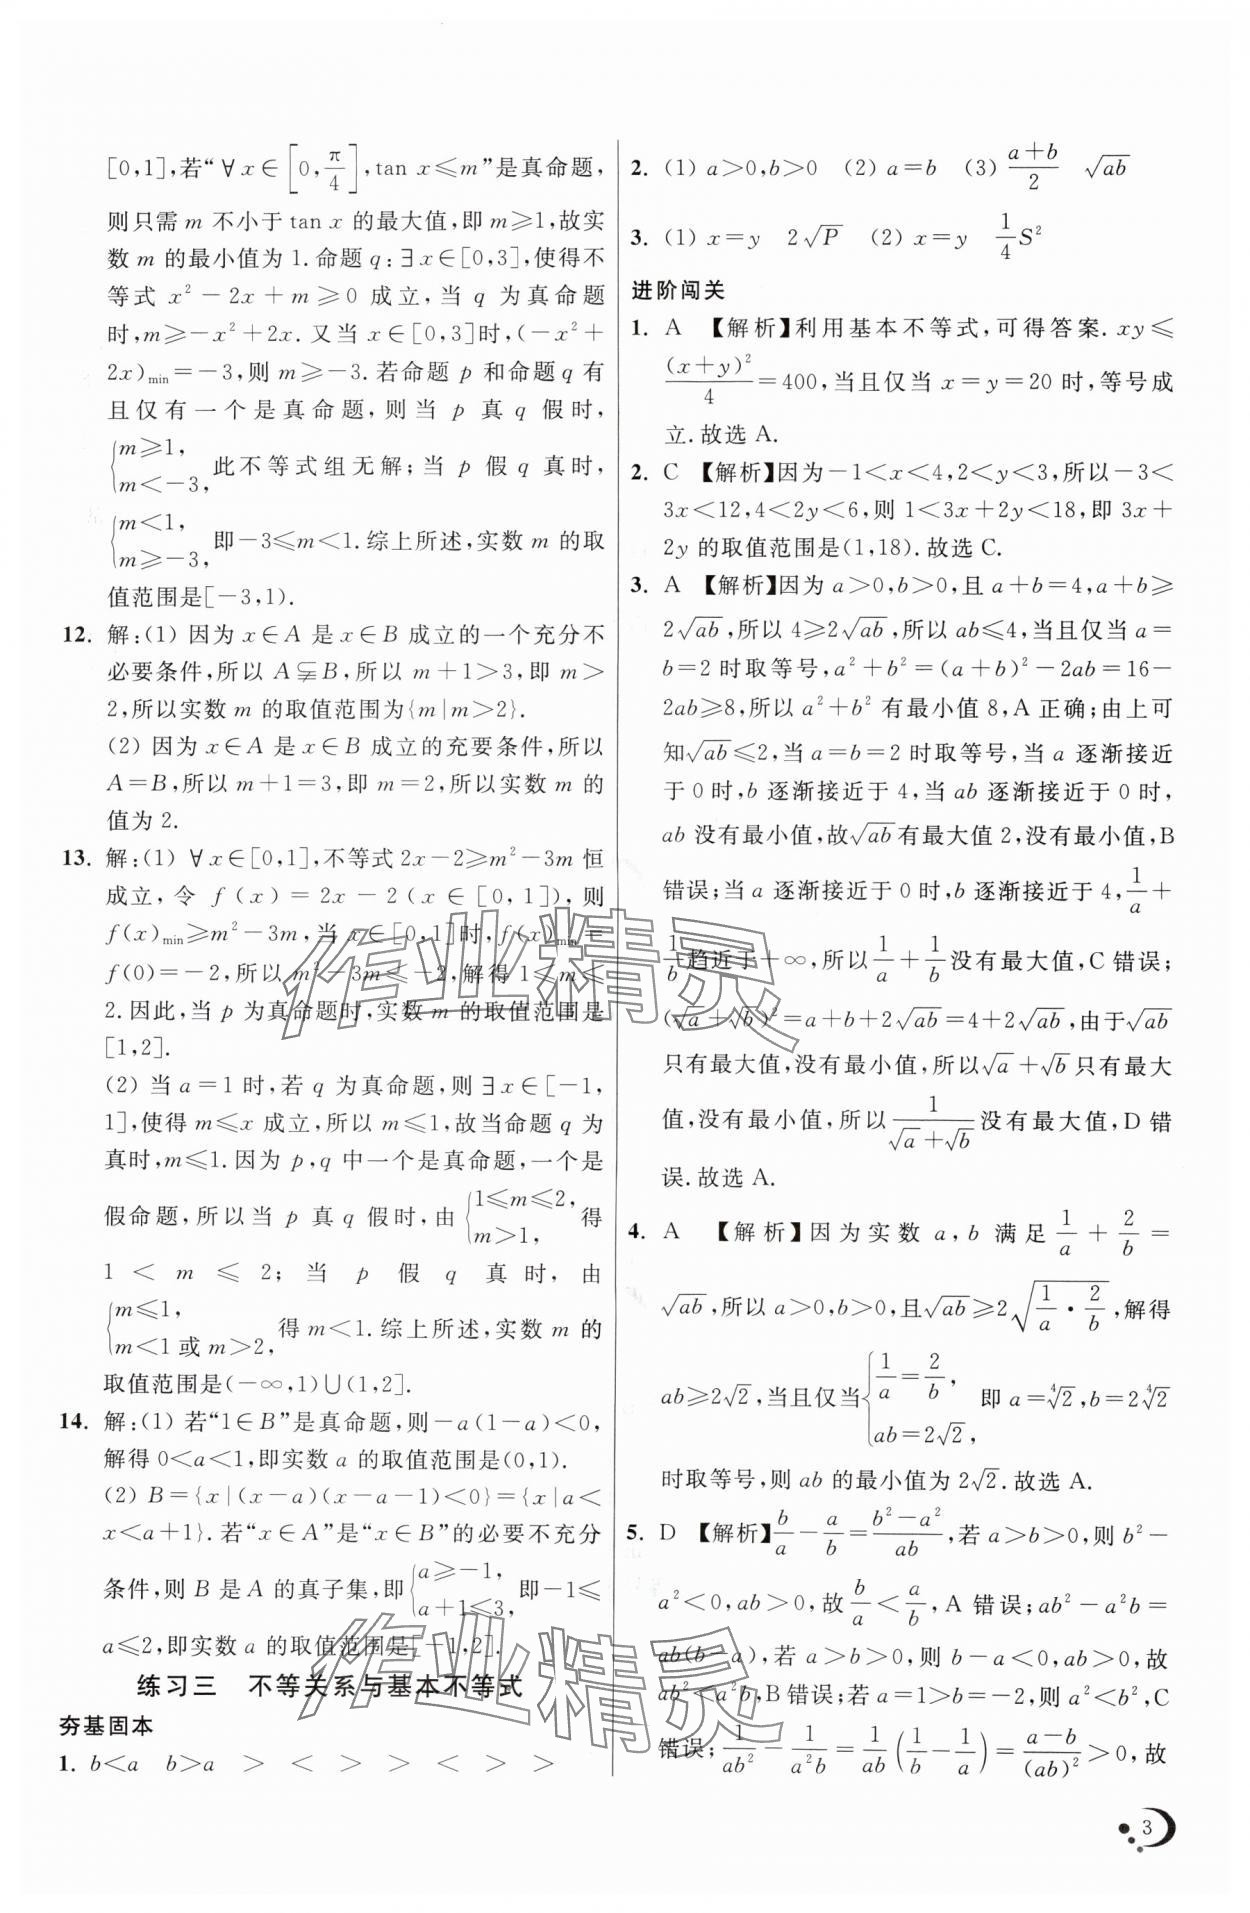 [0,1],若“∀x∈[0,π/4],tan x≤m”是真命题,
则只需 m 不小于 tan x 的最大值,即 m≥1,故实
数 m 的最小值为 1.命题 q:∃x∈[0,3],使得不
等式 x²－2x＋m≥0 成立,当 q 为真命题
时,m≥－x²＋2x.又当 x∈[0,3]时,(－x²＋
2x)min＝－3,则 m≥－3.若命题 p 和命题 q 有
且仅有一个是真命题,则当 p 真 q 假时,
{m≥1, m<－3, 此不等式组无解;当 p 假 q 真时,
{m<1, m≥－3, 即－3≤m<1.综上所述,实数 m 的取
值范围是[－3,1).
12. 解:(1) 因为 x∈A 是 x∈B 成立的一个充分不
必要条件,所以 A⫋B,所以 m＋1>3,即 m>
2,所以实数 m 的取值范围为{m|m>2}.
(2) 因为 x∈A 是 x∈B 成立的充要条件,所以
A＝B,所以 m＋1＝3,即 m＝2,所以实数 m 的
值为 2.
13. 解:(1) ∀x∈[0,1],不等式 2x－2≥m²－3m 恒
成立,令 f(x)＝2x－2(x∈[0,1]),则
f(x)min≥m²－3m,当 x∈[0,1]时,f(x)min＝
f(0)＝－2,所以 m²－3m≤－2,解得 1≤m≤
2.因此,当 p 为真命题时,实数 m 的取值范围是
[1,2].
(2) 当 a＝1 时,若 q 为真命题,则∃x∈[－1,
1],使得 m≤x 成立,所以 m≤1,故当命题 q 为
真时,m≤1.因为 p,q 中一个是真命题,一个是
假命题,所以当 p 真 q 假时,由{1≤m≤2, m>1, 得
1<m≤2;当 p 假 q 真时,由
{m≤1, m<1 或 m>2, 得 m<1.综上所述,实数 m 的
取值范围是(－∞,1)∪(1,2].
14. 解:(1) 若“1∈B”是真命题,则－a(1－a)<0,
解得 0<a<1,即实数 a 的取值范围是(0,1).
(2) B＝{x|(x－a)(x－a－1)<0}＝{x|a<
x<a＋1}.若“x∈A”是“x∈B”的必要不充分
条件,则 B 是 A 的真子集,即{a≥－1, a＋1≤3, 即－1≤
a≤2,即实数 a 的取值范围是[－1,2].
练习三 不等关系与基本不等式
夯基固本
1. b<a b>a > < > > < > >
2. (1) a>0,b>0 (2) a＝b (3) (a＋b)/2 √ab
3. (1) x＝y 2√P (2) x＝y 1/4 S²
进阶闯关
1. A 【解析】利用基本不等式,可得答案.xy≤
(x＋y)²/4＝400,当且仅当 x＝y＝20 时,等号成
立.故选 A.
2. C 【解析】因为－1<x<4,2<y<3,所以－3<
3x<12,4<2y<6,则 1<3x＋2y<18,即 3x＋
2y 的取值范围是(1,18).故选 C.
3. A 【解析】因为 a>0,b>0,且 a＋b＝4,a＋b≥
2√ab,所以 4≥2√ab,所以 ab≤4,当且仅当 a＝
b＝2 时取等号,a²＋b²＝(a＋b)²－2ab＝16－
2ab≥8,所以 a²＋b² 有最小值 8,A 正确;由上可
知√ab≤2,当 a＝b＝2 时取等号,当 a 逐渐接近
于 0 时,b 逐渐接近于 4,当 ab 逐渐接近于 0 时,
ab 没有最小值,故√ab有最大值 2,没有最小值,B
错误;当 a 逐渐接近于 0 时,b 逐渐接近于 4,1/a＋
1/b趋近于＋∞,所以1/a＋1/b没有最大值,C 错误;
(√a＋√b)²＝a＋b＋2√ab＝4＋2√ab,由于√ab
只有最大值,没有最小值,所以√a＋√b只有最大
值,没有最小值,所以 1/(√a＋√b) 没有最大值,D 错
误.故选 A.
4. A 【解析】因为实数 a,b 满足 1/a＋2/b＝
√ab,所以 a>0,b>0,且√ab≥2√(1/a·2/b),解得
ab≥2√2,当且仅当{1/a＝2/b, ab＝2√2, 即 a＝∜2,b＝2∜2
时取等号,则 ab 的最小值为 2√2.故选 A.
5. D 【解析】b/a－a/b＝(b²－a²)/ab,若 a>b>0,则 b²－
a²<0,ab>0,故 b/a<a/b,A 错误;ab²－a²b＝
ab(b－a),若 a>b>0,则 b－a<0,ab>0,故
ab²<a²b,B 错误;若 a＝1>b＝－2,则 a²<b²,C
错误;1/ab²－1/a²b＝1/ab(1/b－1/a)＝(a－b)/(ab)²>0,故
3
作业精灵
作业精灵